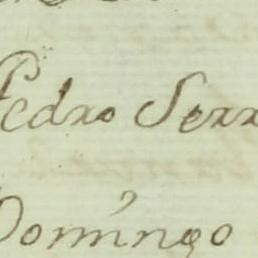 Pedro Serr
Domingo